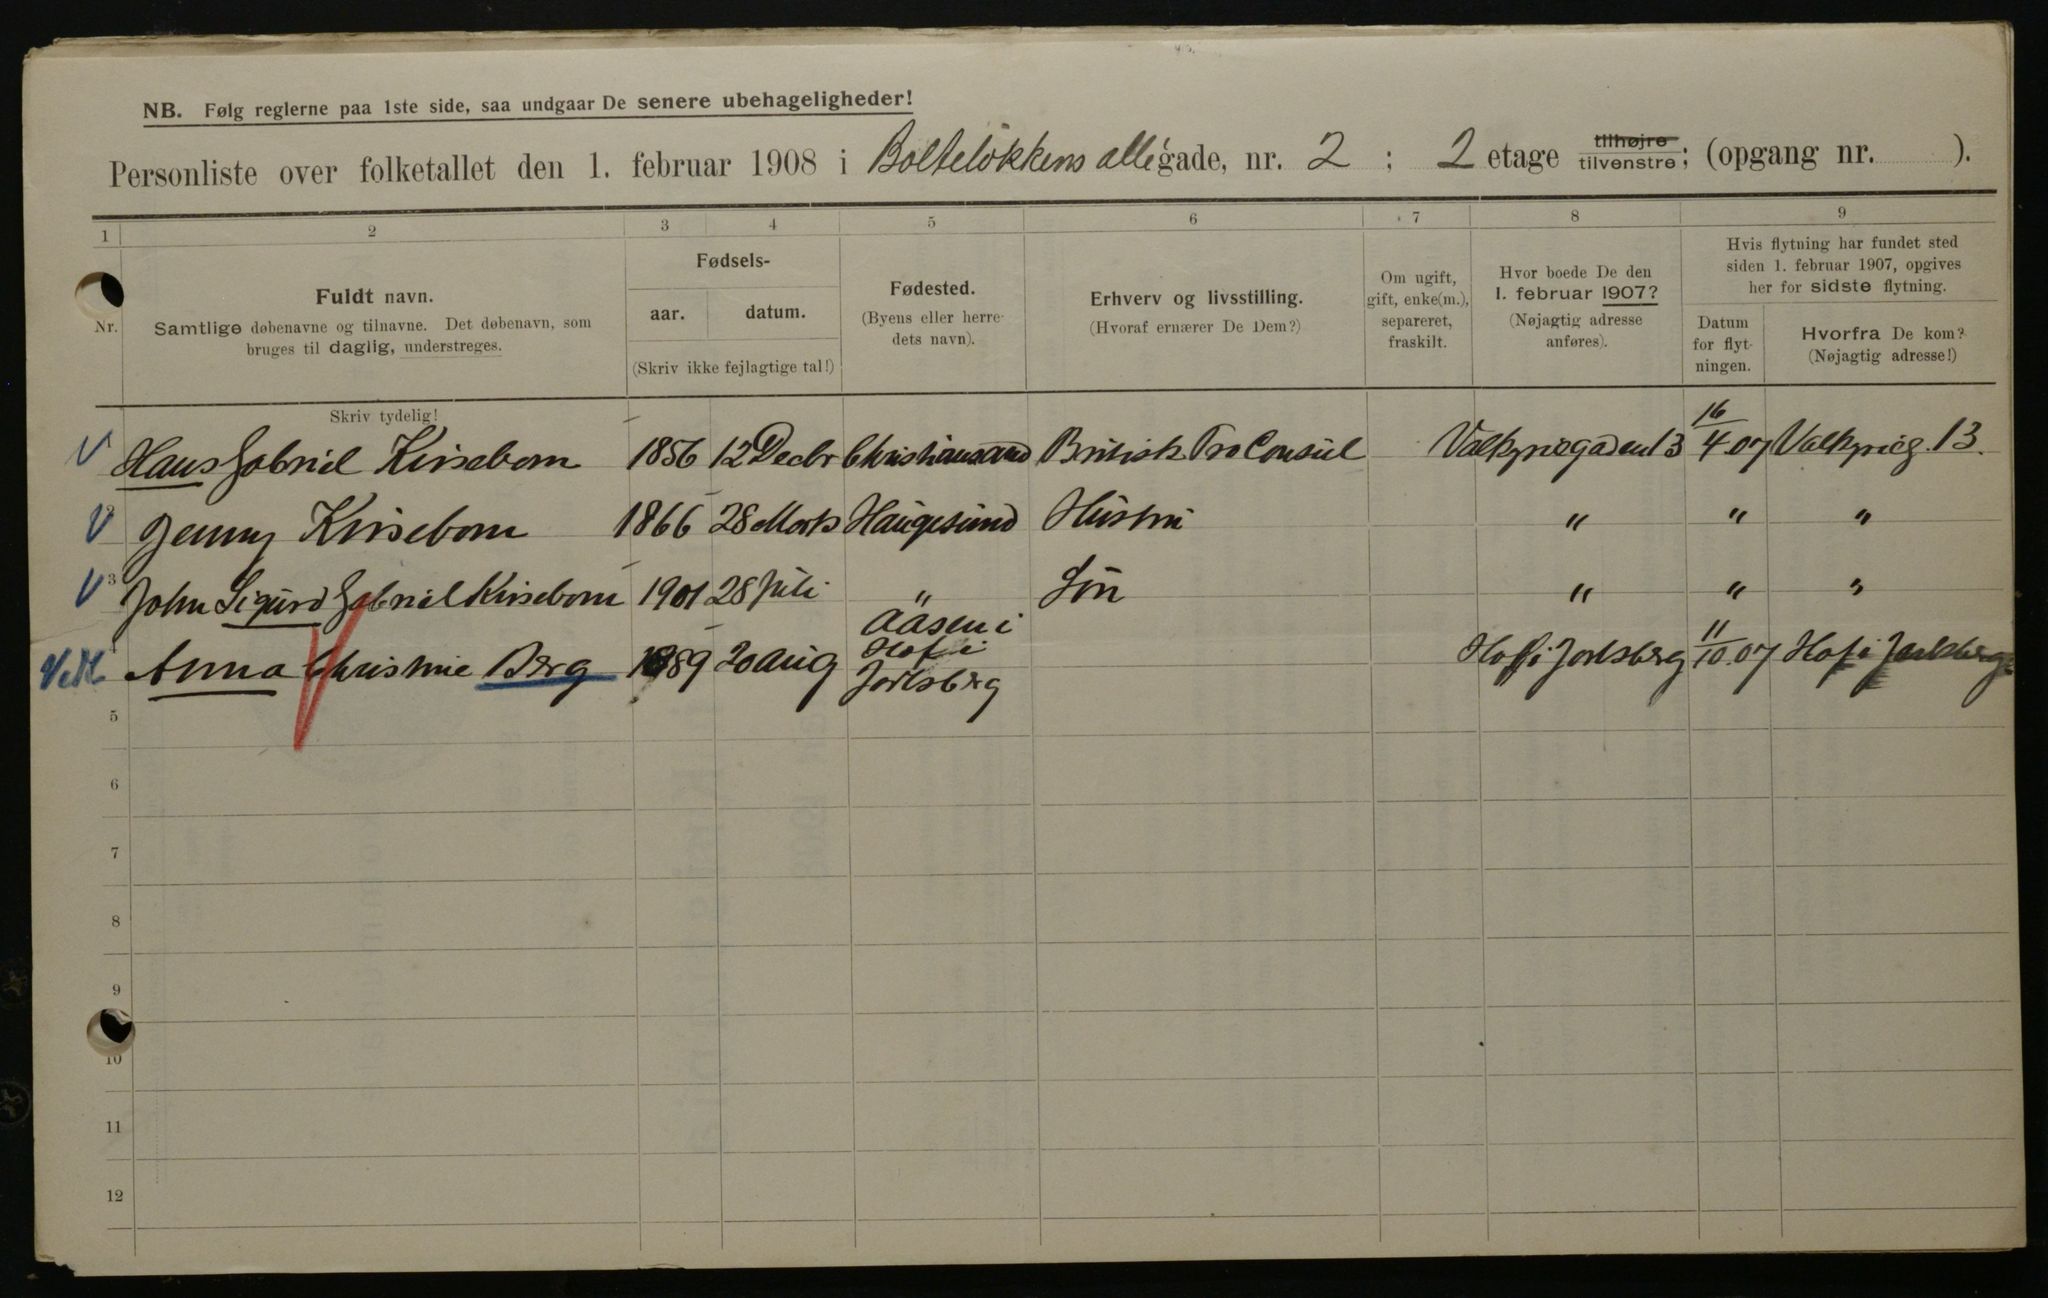 NB. Følg reglerne paa 1ste side, saa undgaar De senere ubehageligheder!
Personliste over folketallet den 1. februar 1908 i Bolteløkkens allé gade, nr. 2 ; 2 etage tilhøjre tilvenstre; (opgang nr. ).
1 2 3 4 5 6 7 8 9
Nr.
Fuldt navn.
Samtlige døbenavne og tilnavne. Det døbenavn, som
bruges til daglig, understreges.
Fødsels-
aar. datum.
(Skriv ikke fejlagtige tal!)
Fødested.
(Byens eller herre-
dets navn).
Erhverv og livsstilling.
(Hvoraf ernærer De Dem?)
Om ugift,
gift, enke(m.),
separeret,
fraskilt.
Hvor boede De den
1. februar 1907?
(Nøjagtig adresse
anføres).
Hvis flytning har fundet sted
siden 1. februar 1907, opgives
her for sidste flytning.
Datum
for flyt-
ningen.
Hvorfra De kom?
(Nøjagtig adresse!)
Skriv tydelig!
V Hans Gabriel Kirsebom 1856 12 Decbr Christiansand British Pro Consul Valkyriegaden 13 16/4.07 Valkyrieg. 13.
V 2 Jenny Kirsebom 1866 28 Marts Haugesund Hustru " " "
V 3 John Sigurd Gabriel Kirsebom 1901 28 Juli " Søn " " "
4 Anna Christine Berg 1889 20 Aug Aasen i Hof i Jarlsberg Hof i Jarlsberg 11/10.07 Hof i Jarlsberg
5
6
7
8
9
10
11
12